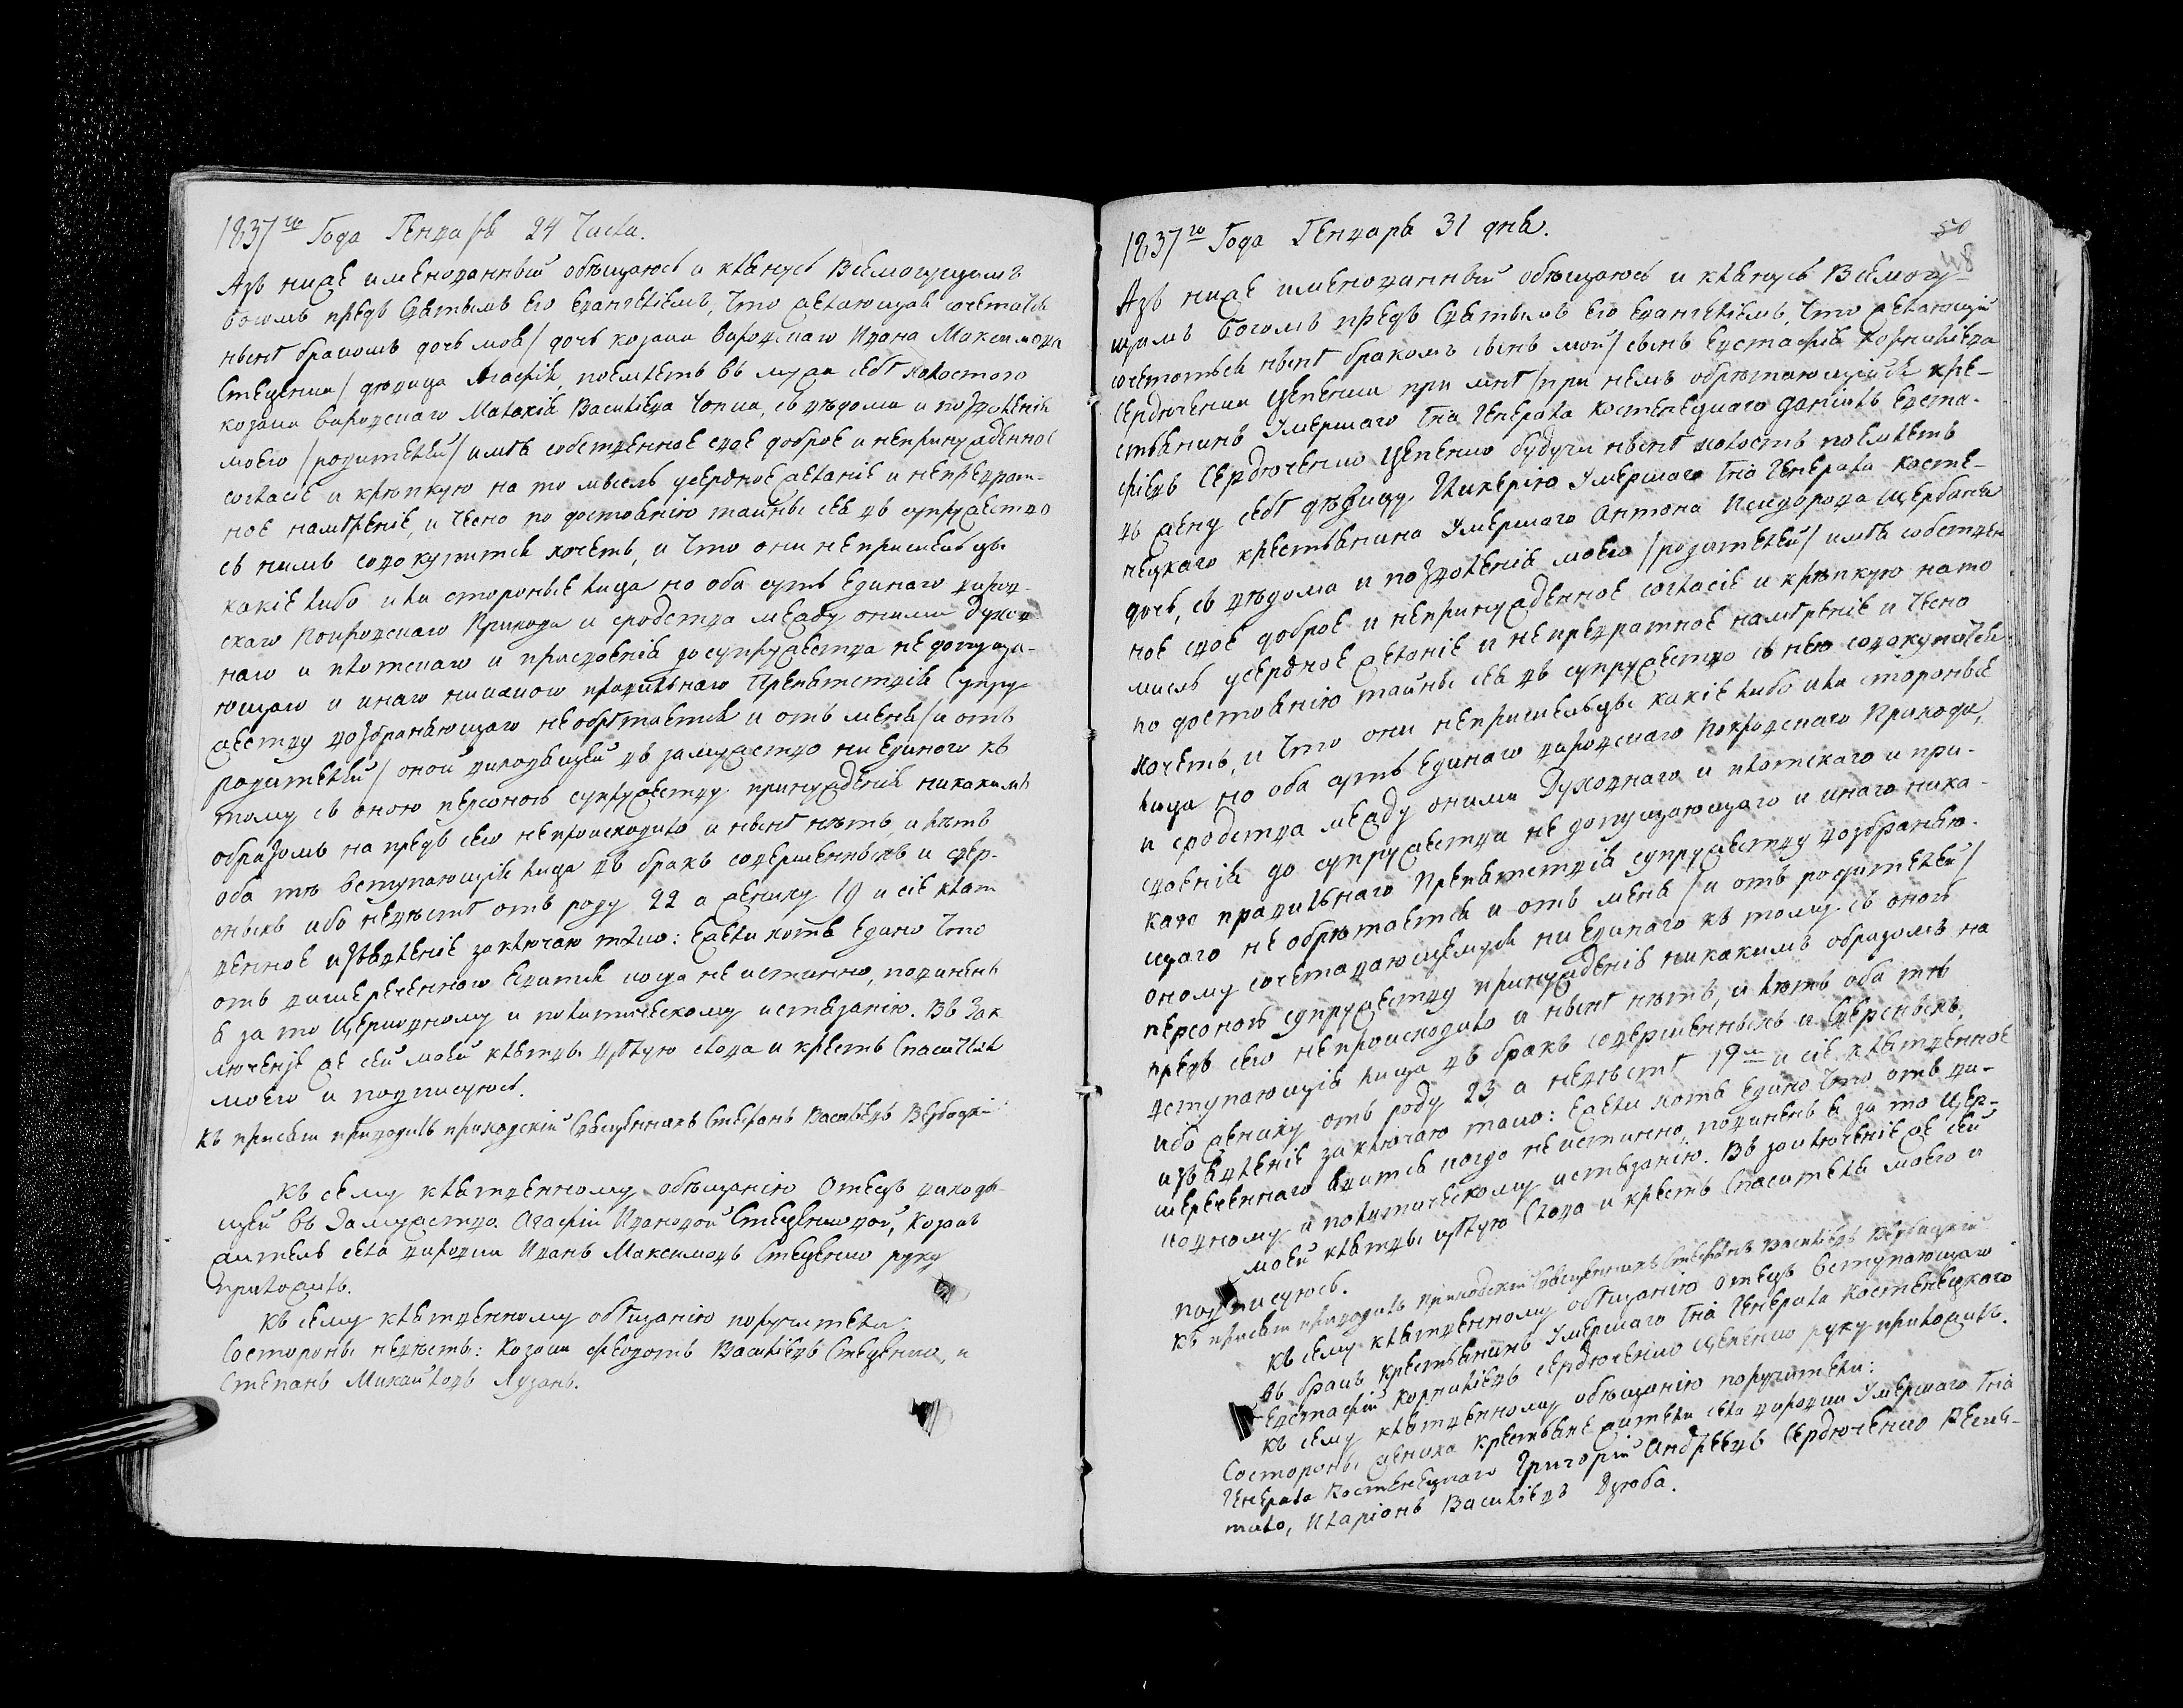 1837го Года Генваря 24 Числа.
Азъ ниже именованный обѣщаюсь и клянусь Всемогущимъ
богомъ предъ Святымъ Его Евангеліемъ, Что желающая сочетатся
нынѣ бракомъ дочь моя /дочь козака виродскаго Ивана Максимова
Стеценка/ дѣвица Агафія, поемлетъ въ мужа себѣ холостого
козака виродскаго Малахія Васильева Чопка, съ вѣдома и позволенія
моего /родителей/ имѣя собственное свое доброе и непринужденное
согласіе и крѣпкую на то мысль усердное желаніе и непревратное
ное намѣреніе, и Чесно по достоянію тайны сея въ супружество
съ нимъ совокупится хочетъ, и что они непришельцы
какіе либо или сторонные лица но оба суть единаго вирод-
скаго Покродскаго Прихода и сродства между оными Духов
наго и плотскаго и присвоенія до супружества не допуща-
ющаго и инаго никакого правильнаго Препятствія Супру-
жеству возбраняющаго не обрѣтается и отъ меня /и отъ
родителей/ оной виходящей въ замужство ни единого къ
тому съ оною персоною супружеству принужденія никакимъ
образомъ на предъ сего непроисходило и нынѣ нѣтъ, и лѣтъ
оба тѣ вступающія лица въ бракъ совершенныхъ и свер-
сныхъ ибо невѣстѣ отъ роду 22 а жениху 19 и сіе клят
венное изъявленіе заключаю тако: Ежели хотя едино что
отъ вишереченного явится когда не истинно, повиненъ
я за то Церковному и политическому истязанію. Въ Зак
люченіе же сей моей клятвы цѣлую слова и крестъ Спасителя
моего и подписуюсь.
Къ присягѣ приводилъ приходскій Священникъ Стефанъ Васильевъ Вербицкій
Къ сему клятвенному обѣщанію Отецъ виходя-
щей въ Замужство Агафіи Ивановой Стеценковой, Козакъ
житель села виродки Иванъ Максимовъ Стеценко руку
приложилъ.
Къ сему клятвенному обѣщанію поручители:
Состороны невѣсты: Козаки Феодотъ Васильевъ Стеценко, и
Степанъ Михайловъ Лузанъ.
50
48
1837го Года Генваря 31 дня.
Азъ ниже именованный обѣщаюсь и клянусь Всемогу-
щимъ богомъ предъ Святымъ Его Евангеліемъ, Что желающій
сочетаться нынѣ бракомъ сынъ мой /сынъ Евстафія Корниліева
Сердюченка Цепенка при мнѣ /при немъ обрѣтающійся кре-
стьянинъ Умершаго Гна Генерала Костенецкаго Даніилъ Евста-
фіевъ Сердюченко Цепенко будучи нынѣ холостъ поемлетъ
въ жену себѣ дѣвицу Гликерію Умершаго Гна Генерала Косте-
нецкаго крестьянина Умершаго Антона Щербаня
дочь, съ вѣдома и позволенія моего /родителей/ имѣя собствен
ное свое доброе и непринужденное согласіе и крѣпкую на то
мисль усердное желаніе и непревратное намѣреніе и Чесно
по достоянію тайны сея въ супружество съ нею совокупится
хочетъ, и что они непришельцы какіе либо или сторонные
лица но оба суть единаго виродскаго Покродскаго Прихода,
и сродства между оними Духовнаго и плотскаго и при-
своенія до супружества не допущающаго и инаго ника-
кого правильнаго Препятствія супружеству возбраняю-
щаго не обрѣтается и отъ меня /и отъ родителей/
оному сочетавающемуся ни единаго къ тому съ оной
персоною супружеству принужденія никакимъ образомъ на
предъ сего непроисходило и нынѣ нѣтъ, и лѣтъ оба тѣ
вступающія лица въ бракъ совершенныхъ и сверсныхъ,
ибо жениху отъ роду 23 а невѣстѣ 19ть и сіе клятвенное
изъявленіе заключаю тако: Ежели хотя едино что отъ ви-
шереченного явится когда не истинно, повиненъ я за то Цер-
ковному и политическому истязанію. Въ заключеніе же сей
моей клятвы цѣлую слова и крестъ Спасителя моего и
подписуюсь.
Къ присягѣ приводилъ Приходскій Священникъ Стефанъ Васильевъ Вербицкій
Къ сему клятвенному обѣщанію отецъ вступающаго
въ бракъ крестьянинъ Умершаго Гна Генерала Костенецкаго
Евстафій Корниліевъ Сердюченко Цепенко руку приложилъ.
Къ сему клятвенному обѣщанію поручители:
Состороны жениха крестьяне жители села виродки Умершаго Гна
Генерала Костенецкаго Григорій Андреевъ Сердюченко
Иларіонъ Васильевъ Дзюба.